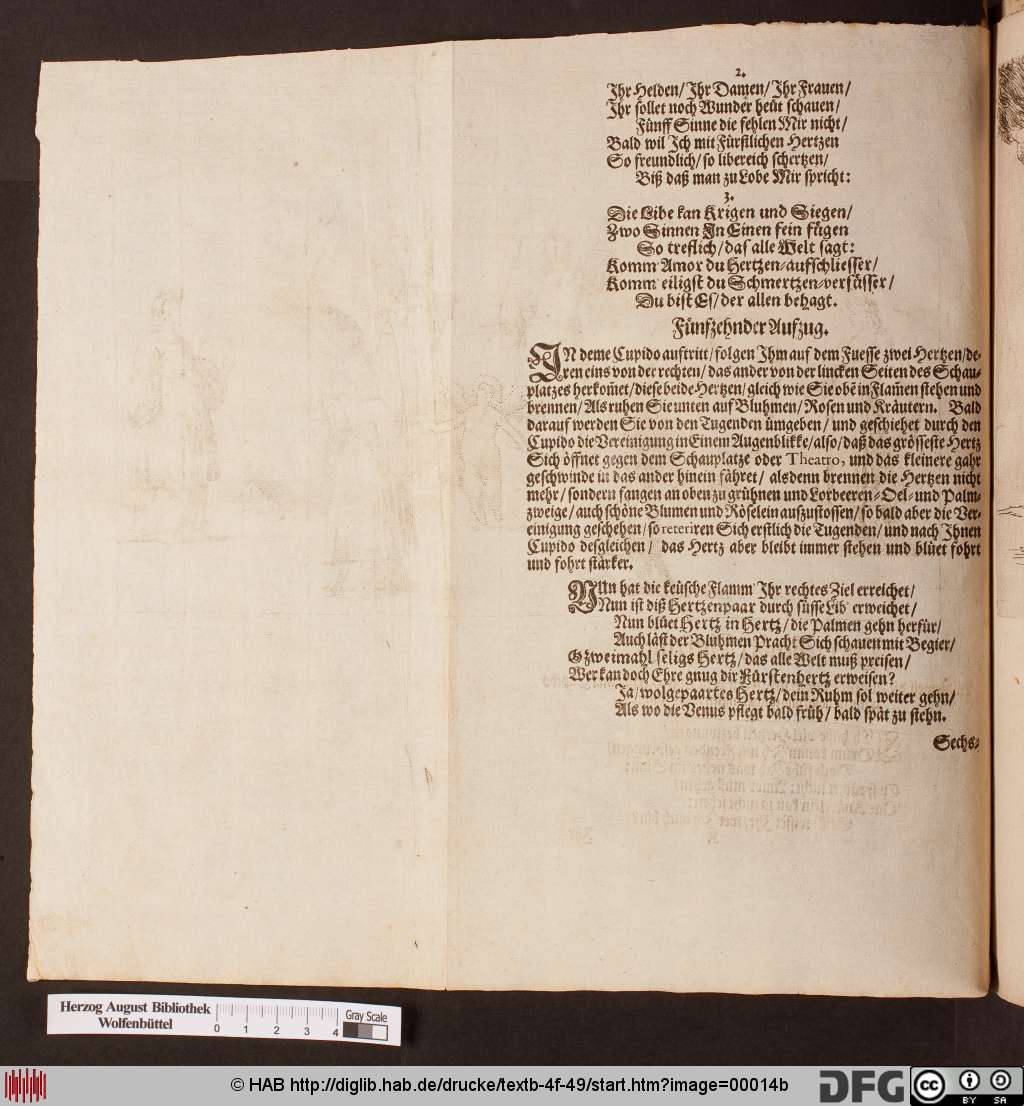 2.
Ihr Helden/ Ihr Damen/ Ihr Frauen/
Ihr sollet noch Wunder heüt schauen/
Fünff Sinne die fehlen Mir nicht/
Bald wil Ich mit Fürstlichen Hertzen
So freundlich/ so libereich schertzen/
Biß daß man zu Lobe Mir spricht:
3.
Die Libe kan Krigen und Siegen/
Zwo Sinnen In Einen fein fügen
So treflich/ das alle Welt sagt:
Komm Amor du Hertzen-aufschliesser/
Komm eiligst du Schmertzen-versüsser/
Du bist Es/ der allen behagt.
Fünfzehnder Aufzug.
IN deme Cupido auftritt/ folgen Ihm auf dem Fuesse zwei Hertzen/ de-
ren eins von der rechten/ das ander von der lincken Seiten des Schau-
platzes herkom̃et/ diese beide Hertzen/ gleich wie Sie obẽ in Flam̃en stehen und
brennen/ Als ruhen Sie unten auf Bluhmen/ Rosen und Kräutern. Bald
darauf werden Sie von den Tugenden ümgeben/ und geschiehet durch den
Cupido die Vereinigung in Einem Augenblikke/ also/ daß das grösseste Hertz
Sich öffnet gegen dem Schauplatze oder Theatro, und das kleinere gahr
geschwinde in das ander hinein fähret/ alsdenn brennen die Hertzen nicht
mehr/ sondern fangen an oben zu grühnen und Lorbeeren-Oel-und Palm-
zweige/ auch schöne Blumen und Röselein auszustossen/ so bald aber die Ver-
einigung geschehen/ so reteriren Sich erstlich die Tugenden/ und nach Ihnen
Cupido desgleichen/ das Hertz aber bleibt immer stehen und blüet fohrt
und fohrt stärker.
NUn hat die keüsche Flamm' Ihr rechtes Ziel erreichet/
Nun ist diß Hertzenpaar durch süsse Lib' erweichet/
Nun blüet Hertz in Hertz/ die Palmen gehn herfür/
Auch läst der Bluhmen Pracht Sich schauen mit Begier/
O zweimahl seligs Hertz/ das alle Welt muß preisen/
Wer kan doch Ehre gnug dir Fürstenhertz erweisen?
Ja/ wolgepaartes Hertz/ dein Ruhm sol weiter gehn/
Als wo die Venus pflegt bald früh/ bald spät zu stehn.
Sechs-
Herzog August Bibliothek
Wolfenbüttel
0 1 2 3 4
Gray Scale
© HAB http://diglib.hab.de/drucke/textb-4f-49/start.htm?image=00014b
DFG
cc BY SA